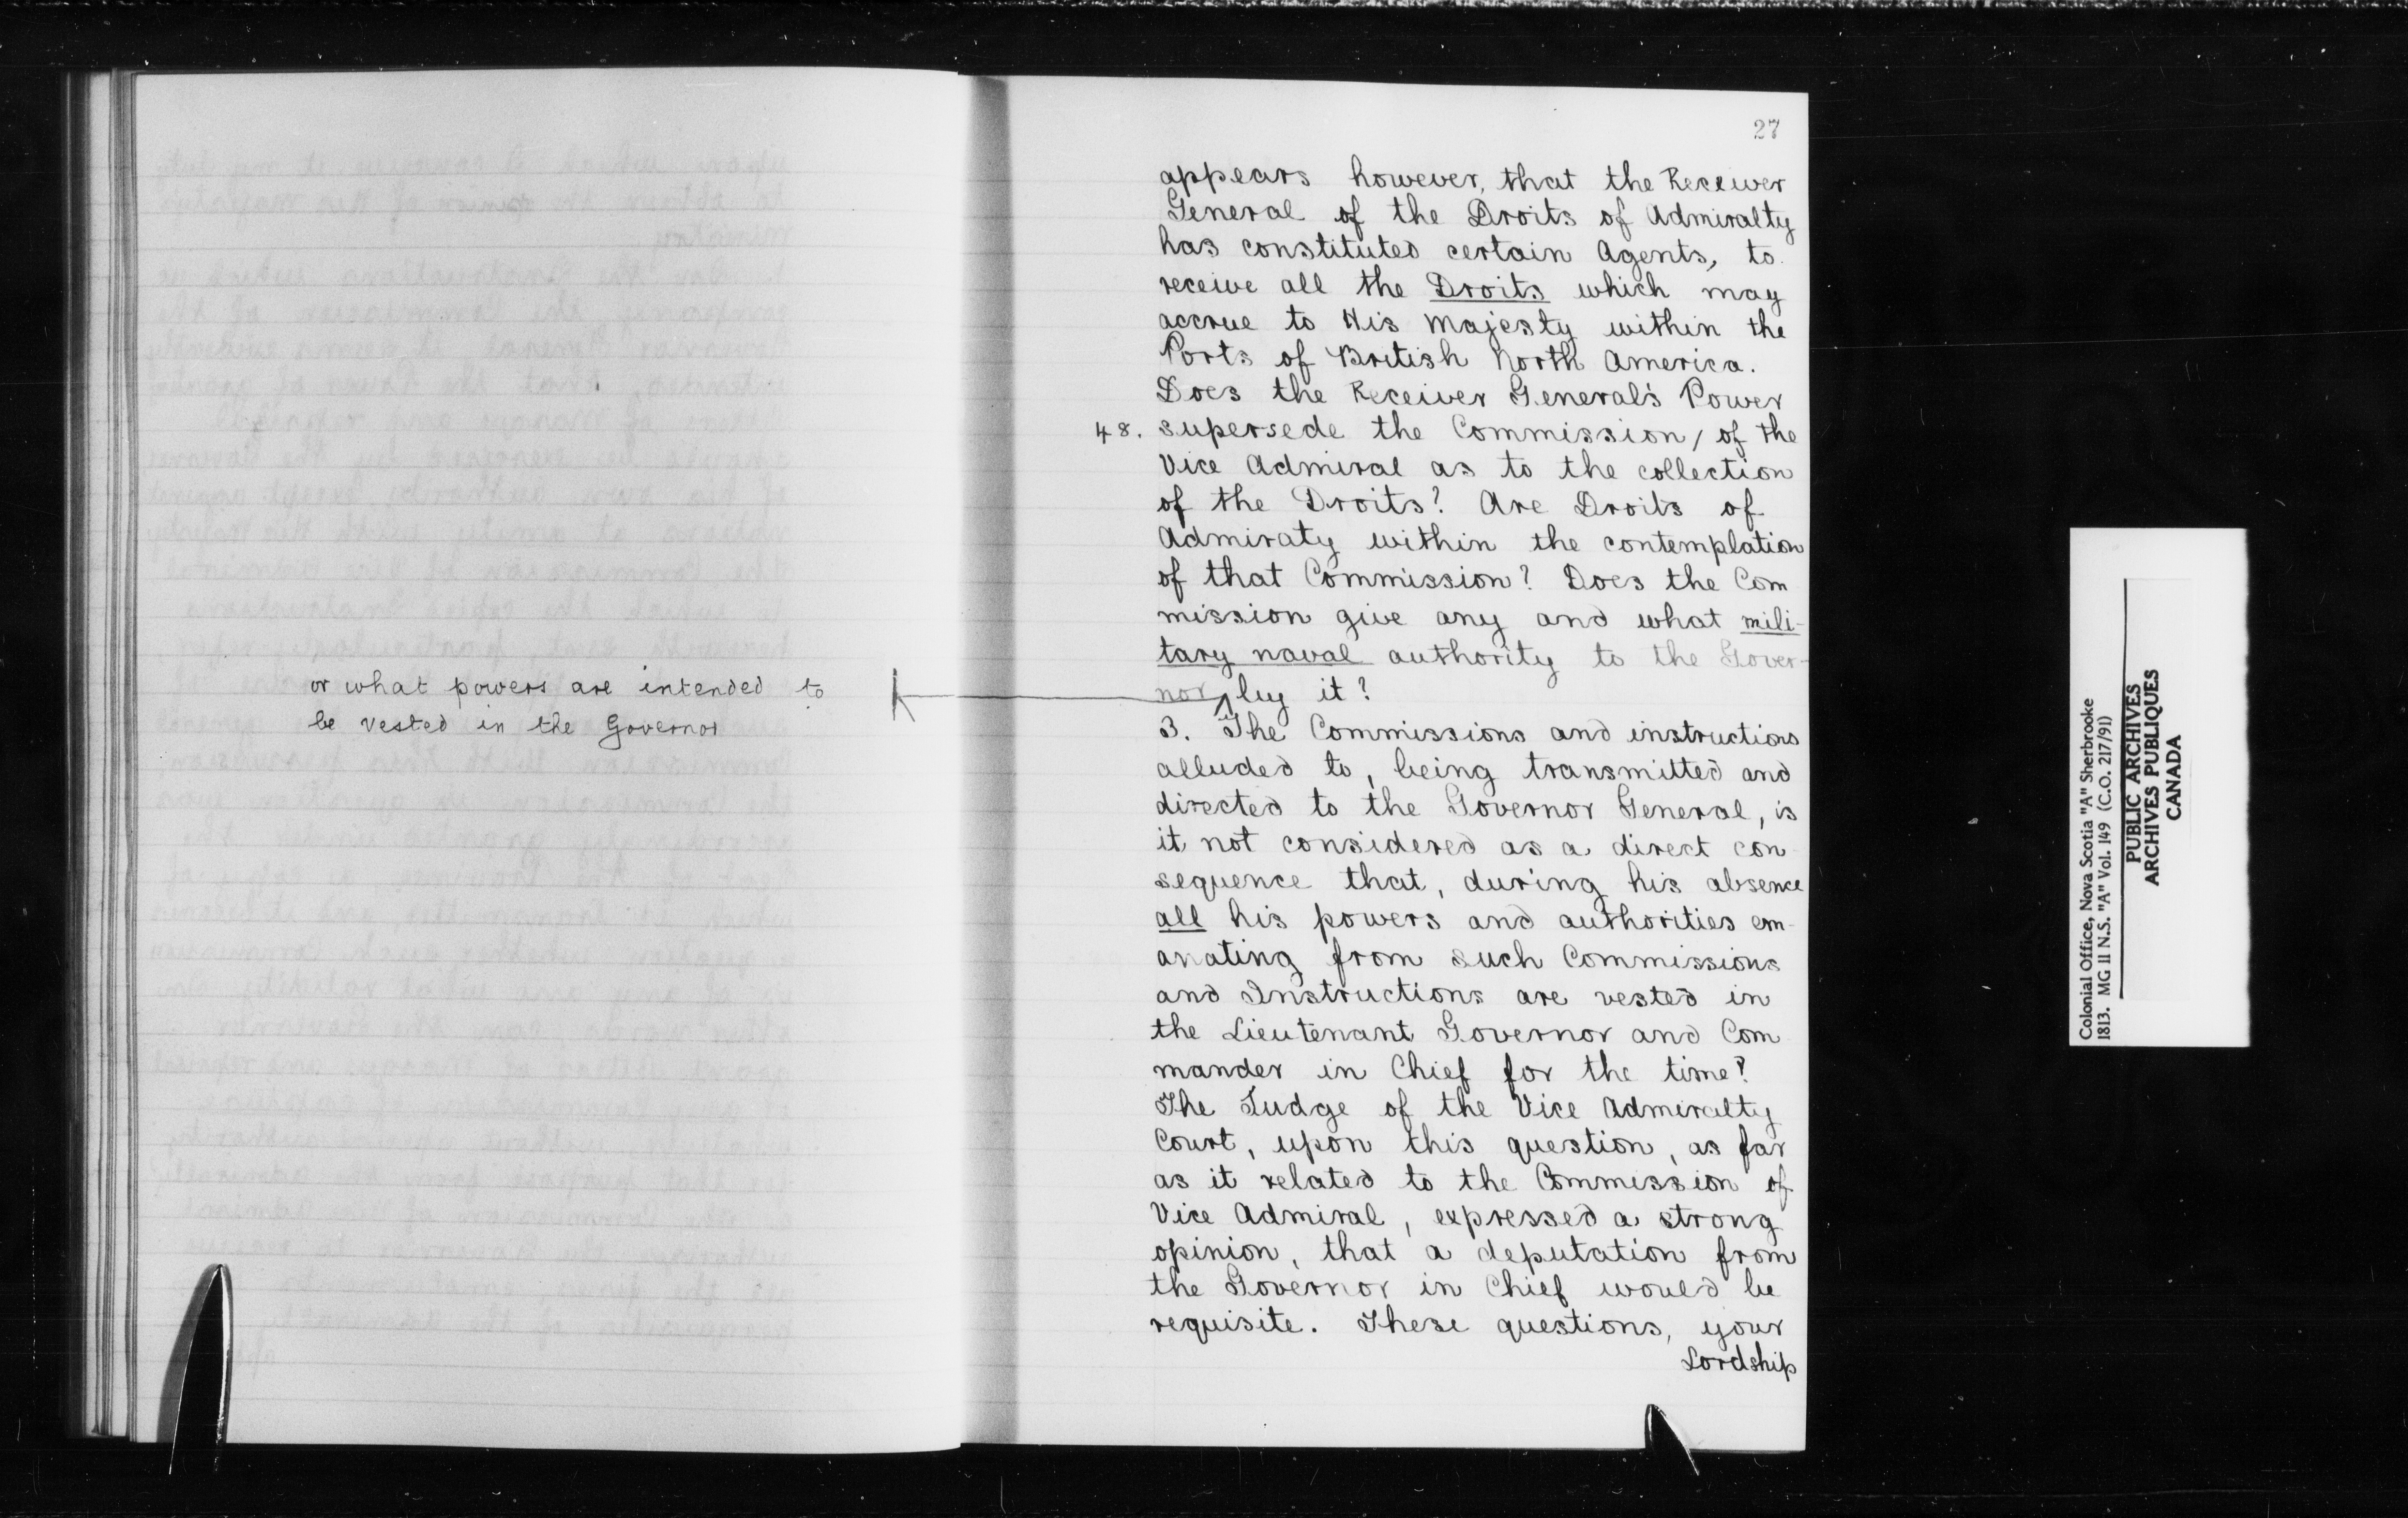 or what powers are intended to
be vested in the Governor
27
appears however, that the Receiver
General of the Droits of Admiralty
has constituted certain Agents, to
receive all the Droits which may
accrue to His Majesty within the
Ports of British North America.
Does the Receiver General's Power
48. supersede the Commission / of the
Vice Admiral as to the collection
of the Droits? Are Droits of
Admiraty within the contemplation
of that Commission? Does the Com
mission give any and what mili-
tary naval authority to the Gover-
nor by it?
3. The Commissions and instructions
alluded to, being transmitted and
directed to the Governor General, is
it not considered as a direct con
sequence that, during his absence
all his powers and authorities em-
anating from such Commissions
and Instructions are vested in
the Lieutenant Governor and Com
mander in Chief for the time?
The Judge of the Vice Admiralty
Court, upon this question, as far
as it related to the Commission of
Vice Admiral, expressed a strong
opinion, that a deputation from
the Governor in Chief would be
requisite. These questions, your
Lordship
Colonial Office, Nova Scotia "A" Sherbrooke
1813. MG 11 N.S. "A" Vol. 149 (C.O. 217/91)
PUBLIC ARCHIVES
ARCHIVES PUBLIQUES
CANADA